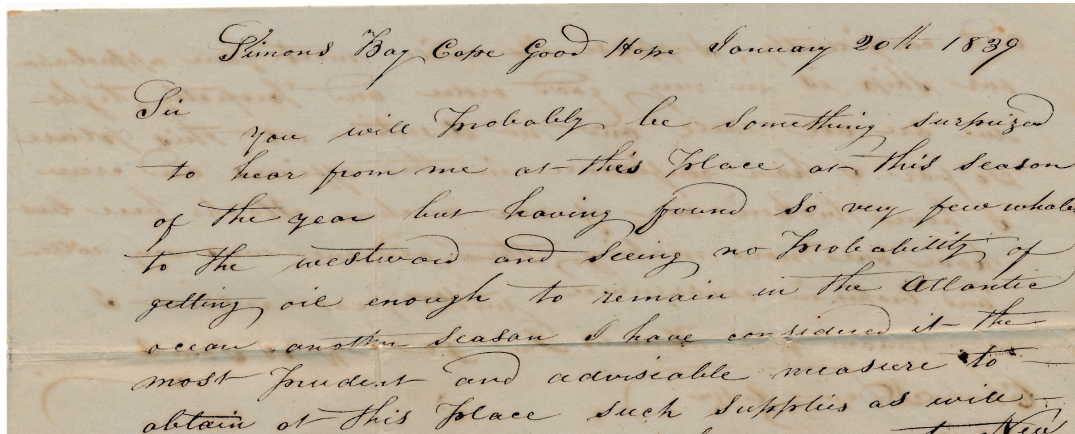 Simons Bay Cape Good Hope January 20th 1839
Sir
You will Probably be something surprized
to hear from me at this Place at this season
of the year but having found so very few whales
to the westward and seeing no Probability of
getting oil enough to remain in the Atlantic
ocean another season I have considered it the
most Prudent and adviseable measure to
obtain at this Place such supplies as will
to New